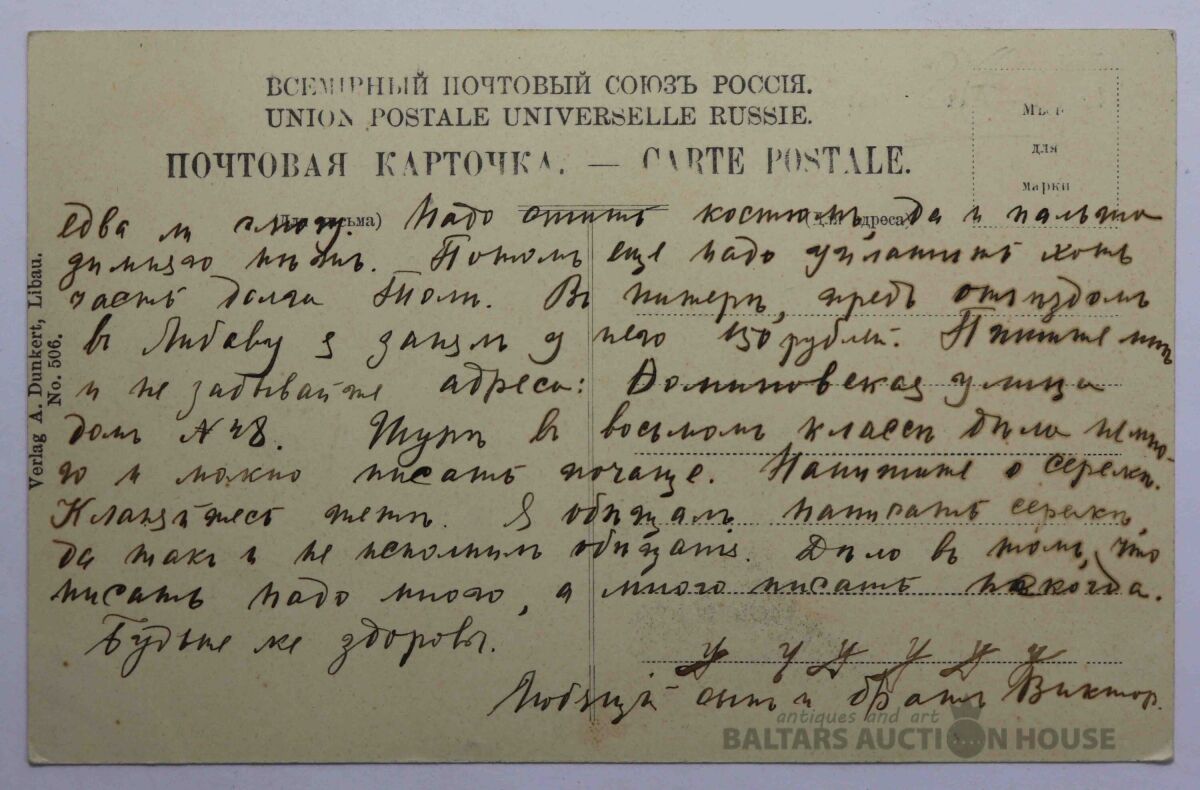 ВСЕМІРНЫЙ ПОЧТОВЫЙ СОЮЗЪ РОССІЯ.
UNION POSTALE UNIVERSELLE RUSSIE.
ПОЧТОВАЯ КАРТОЧКА. — CARTE POSTALE.
Мѣсто
для
марки
(Для письма)
(Для адреса)
Verlag A. Dunkert, Libau.
No. 506.
едва ли смогу. Надо сшить костюмъ, да и пальто
зимняго нѣтъ. Потомъ еще надо уплатить хоть
часть долга Толи. Въ питерѣ, предъ отъѣздомъ
въ Либаву я занялъ у него 150 рублей. Пишите мнѣ
и не забывайте адреса: улица
домъ № 28. въ восьмомъ классѣ дѣла немно-
го и можно писать почаще. Напишите о сережѣ.
Кланяйтесь тетѣ. Я обѣщалъ написать сережѣ,
да такъ и не исполнилъ обѣщанія. Дѣло въ томъ, что
писать надо много, а много писать некогда.
Будьте же здоровы.
Любящій сынъ и братъ Викторъ.
antiques and art
BALTARS AUCTION HOUSE